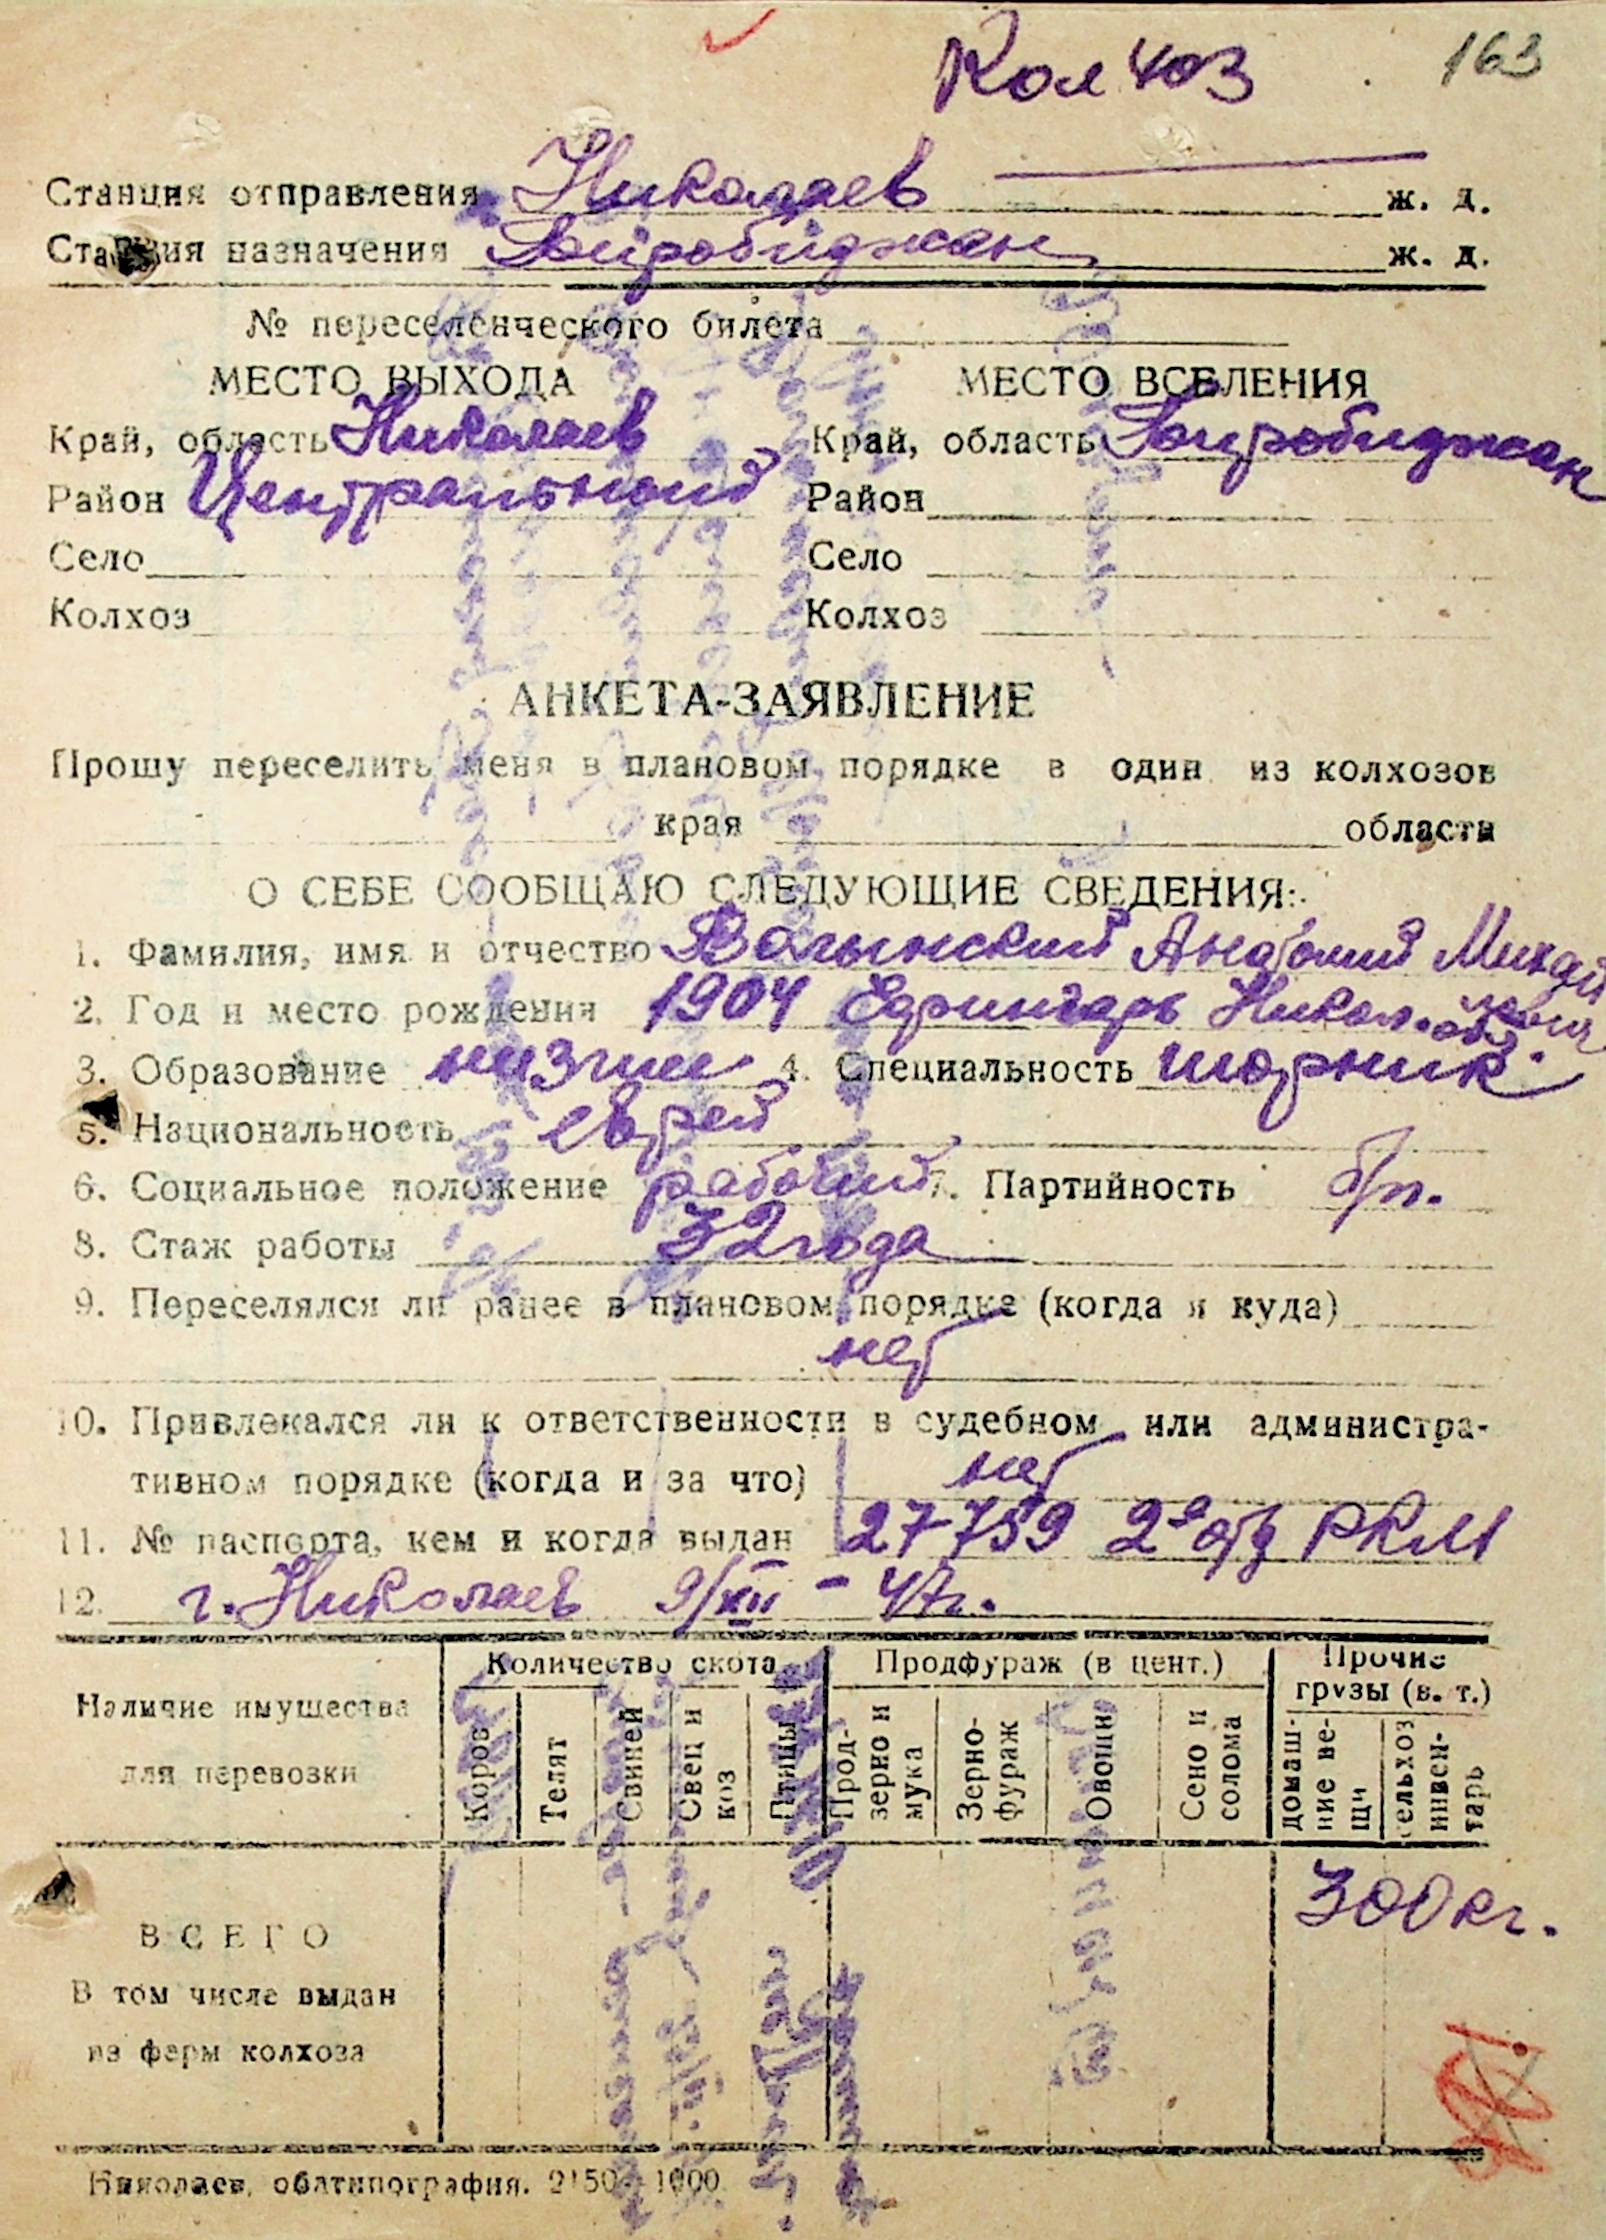 Колхоз
163
Станция отправления Николаев ж. д.
Станция назначения Биробиджан ж. д.
№ переселенческого билета
МЕСТО ВЫХОДА МЕСТО ВСЕЛЕНИЯ
Край, область Николаев Край, область Биробиджан
Район Центральный Район
Село Село
Колхоз Колхоз
АНКЕТА-ЗАЯВЛЕНИЕ
Прошу переселить меня в плановом порядке в один из колхозов
края области
О СЕБЕ СООБЩАЮ СЛЕДУЮЩИЕ СВЕДЕНИЯ:
1. Фамилия, имя и отчество Волынский Анатолий Михайлович
2. Год и место рождения 1904 Ефингарь Никол. обл.
3. Образование низшее 4. Специальность шорник
5. Национальность еврей
6. Социальное положение рабочий 7. Партийность б/п.
8. Стаж работы 32 года
9. Переселялся ли ранее в плановом порядке (когда и куда)
нет
10. Привлекался ли к ответственности в судебном или администра-
тивном порядке (когда и за что) нет
11. № паспорта, кем и когда выдан 27759 2е отд РКМ
12. г. Николаев 9/XII - 47г.
Наличие имущества для перевозки
Количество скота Продфураж (в цент.) Прочие грузы (в. т.)
Коров Телят Свиней Овец и коз Птицы Прод-зерно и мука Зерно-фураж Овощи Сено и солома домаш-ние ве-щи сельхоз инвен-тарь
300 кг.
ВСЕГО
В том числе выдан
из ферм колхоза
Николаев, облтипография. 2150-1000